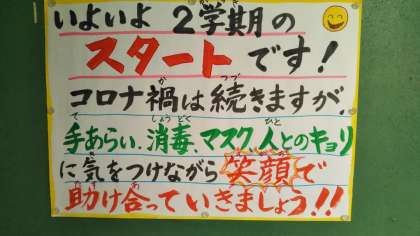 いよいよ 2学期の
スタートです!
コロナ禍は続きますが、
手あらい、消毒、マスク 人とのキョリ
に気をつけながら 笑顔で
助け合っていきましょう!!